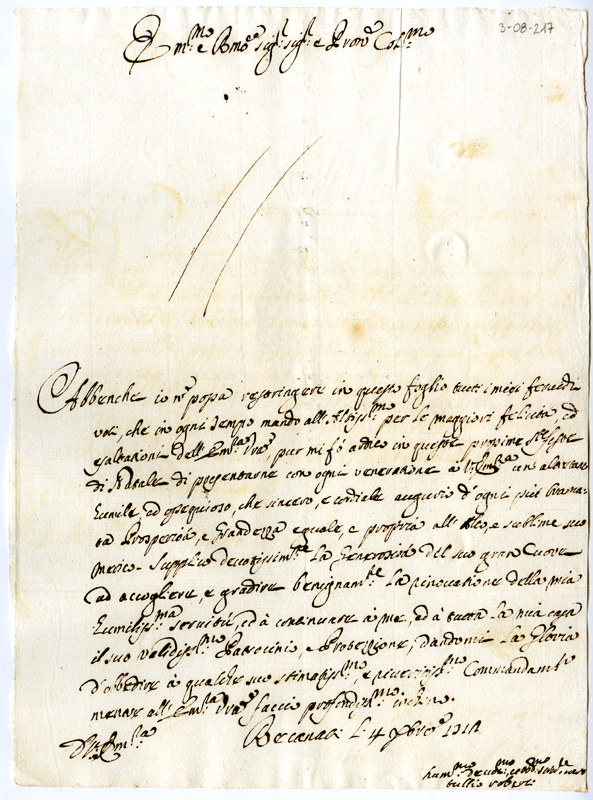 3-08-217
Em.mo e R.mo Sig.r Sig.r e Pron. Col.mo
Abbenche io n possa restringere in questo foglio tutti i miei fervidi
voti, che in ogni tempo mando all'Altiss.mo per le maggiori felicità, ed
esaltazioni dell'Em.za Vra pur mi fò ardito in queste prossime S.te Feste
di Natale di presentarne con ogni venerazione à V. Em.za
humile, ed ossequioso, che sincero, e cordiale augurio d'ogni più brama-
ta Prosperità, e Grandezza eguale, e propria all' alto, e sublime suo
merito. Supplico devotissim.te La Generosità del suo gran Cuore
ad accogliere, e gradire benignam.te La rinovatione della mia
humiliss.ma servitù, ed à continuare à me, ed à tutta La mia casa
il suo validiss.mo Patrocinio, e Protezzione, dandomi La Gloria
d'obbedire à qualche suo stimatiss.mo, e riveritiss.mo Commandam.to
mentre all' Em.za Vra faccio profondiss.mo inchino.
Recanati Li 4 Xbre 1714
D V. Em.za
hum.mo
tullio roberti